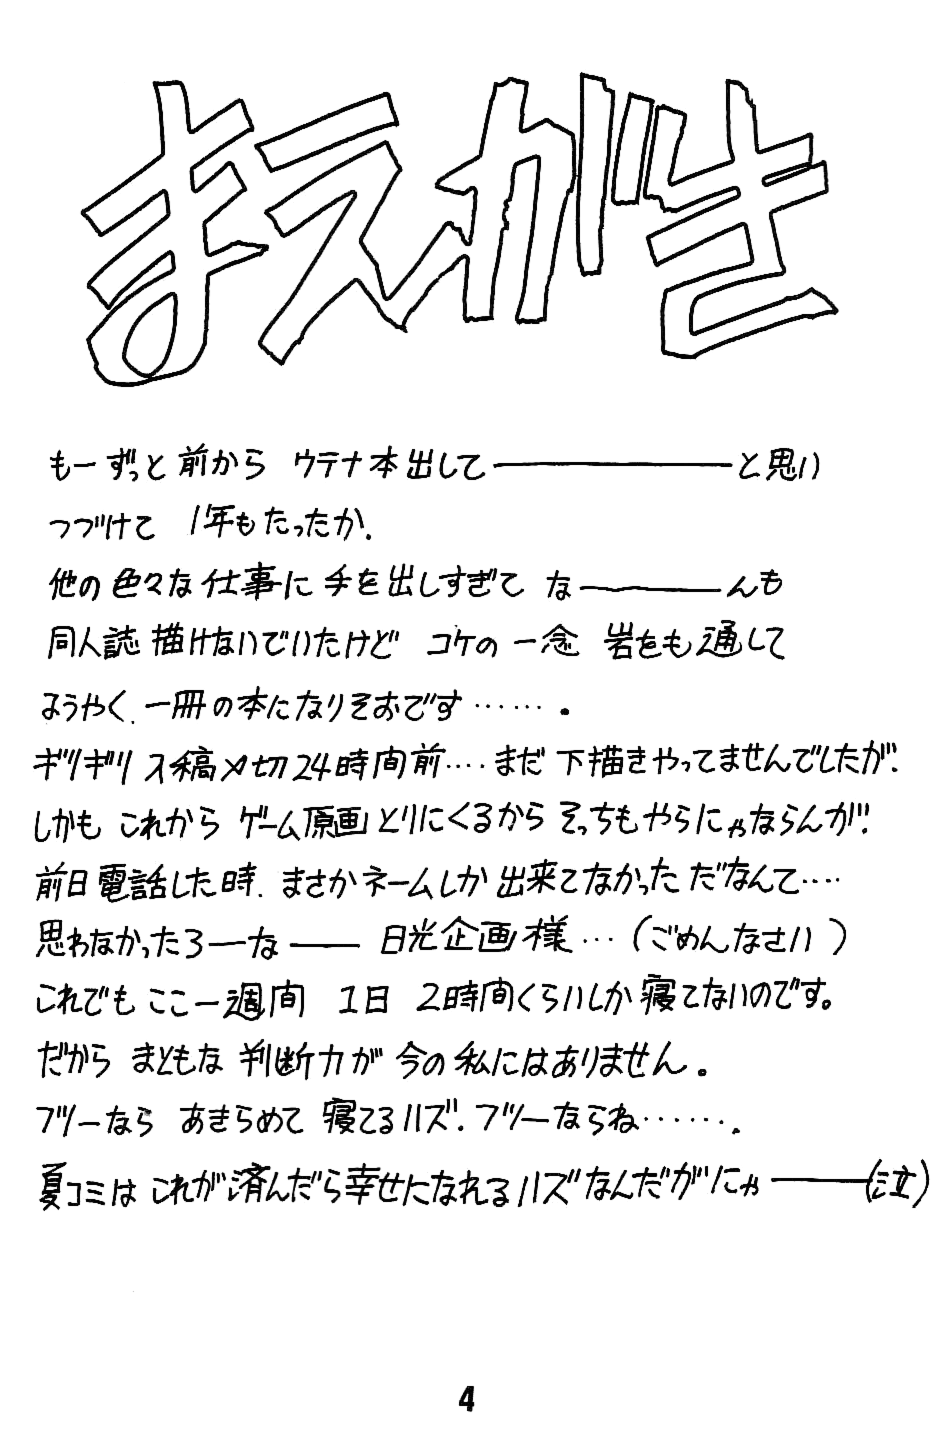 まえがき
もーずっと前から ウテナ本出して――――と思い
つづけて 1年もたったか.
他の色々な仕事に手を出しすぎて な―――んも
同人誌描けないでいたけど コケの一念 岩をも通して
ようやく.一冊の本になりそおです……。
ギリギリ入稿〆切24時間前‥‥まだ 下描きやってませんでしたが.
しかも これから ゲーム原画とりにくるから そっちもやらにゃならんが!
前日電話した時. まさかネームしか出来てなかっただなんて‥‥
思わなかったろーな―― 日光企画様…(ごめんなさい)
これでもここ一週間 1日 2時間くらいしか寝てないのです。
だから まともな 判断力が 今の私にはありません。
フツーなら あきらめて 寝てるハズ. フツーならね…….
夏コミは これが済んだら幸せになれるハズなんだがにゃ――(泣)
4